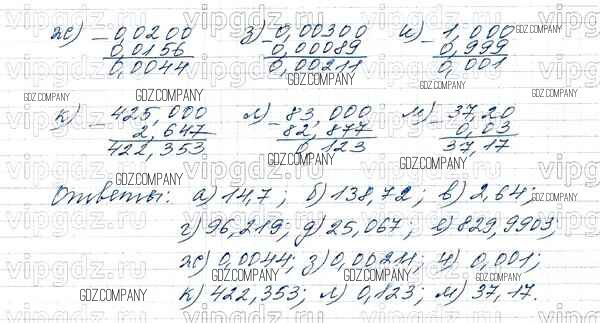 ж) - 0,0200 з) - 0,00300 и) - 1,000
0,0156 0,00089 0,999
0,0044 0,00211 0,001
GDZ.COMPANY GDZ.COMPANY GDZ.COMPANY
к) - 425,000 л) - 83,000 м) - 37,20
2,647 82,877 0,03
422,353 0,123 37,17
GDZ.COMPANY GDZ.COMPANY GDZ.COMPANY
Ответы: а) 14,7; б) 138,72; в) 2,64;
г) 96,219; д) 25,067; е) 829,9903;
ж) 0,0044; з) 0,00211; и) 0,001;
GDZ.COMPANY GDZ.COMPANY GDZ.COMPANY
к) 422,353; л) 0,123; м) 37,17.
vipgdz.ru